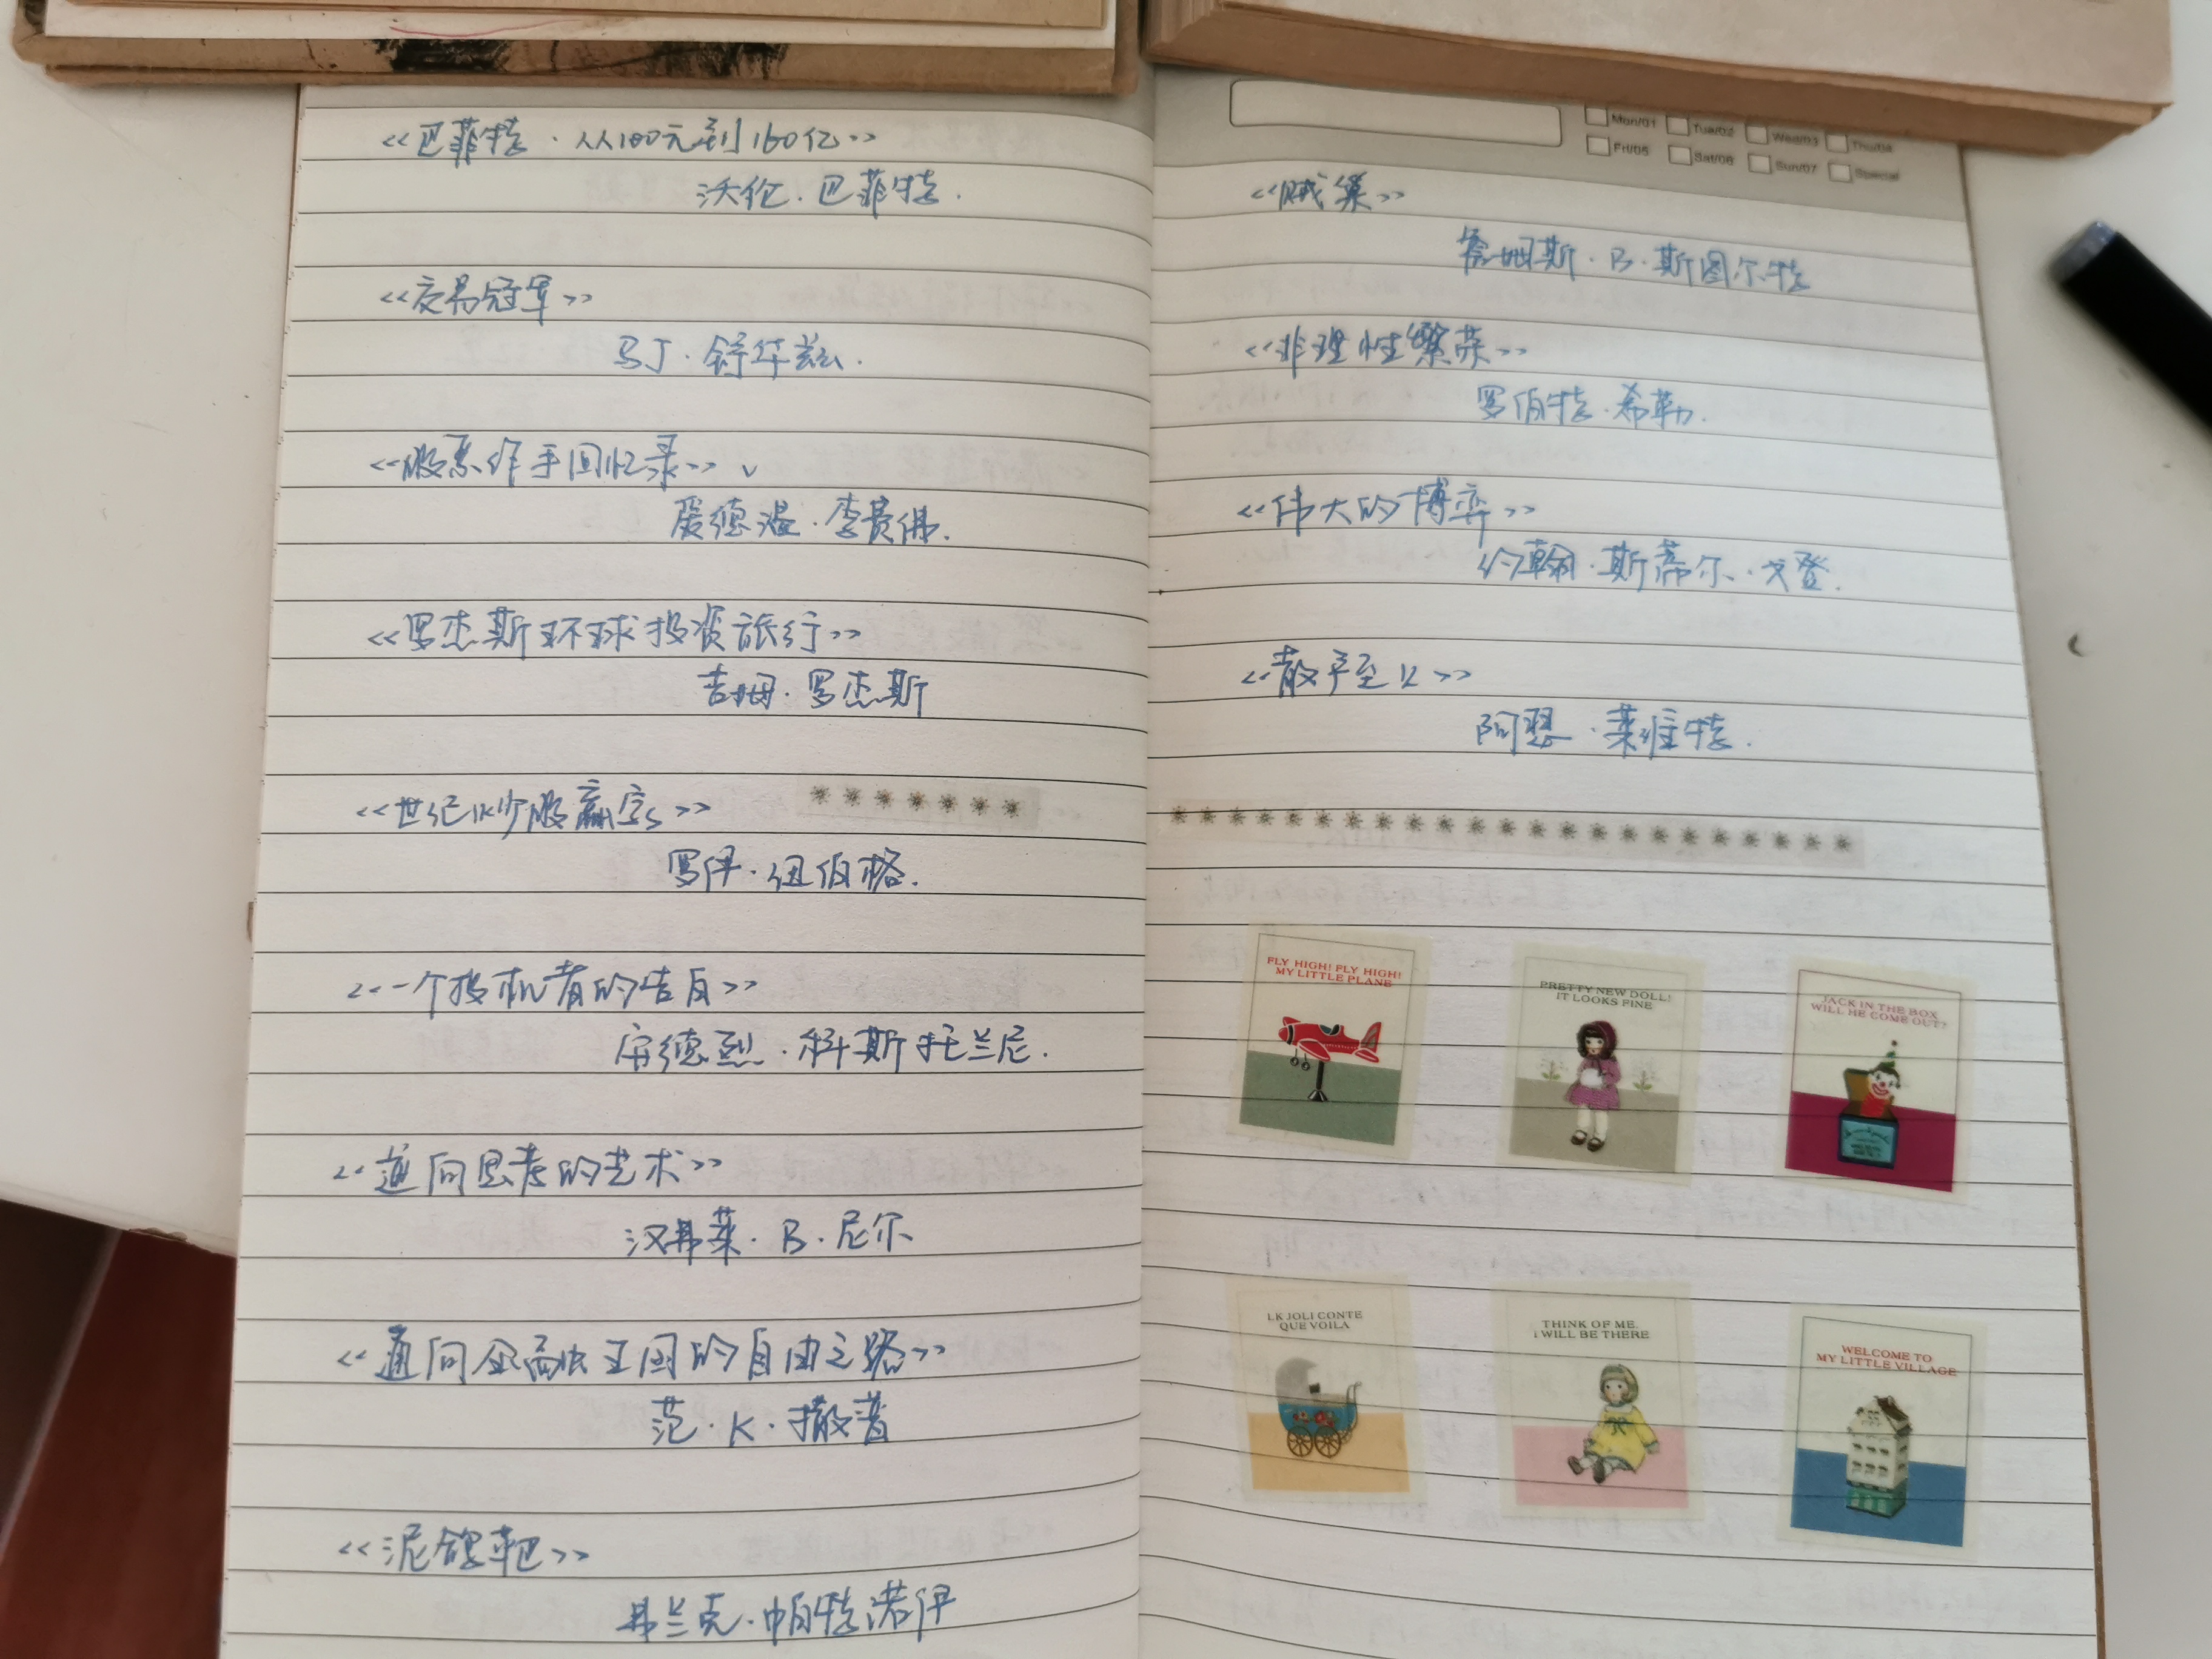 《巴菲特·从100元到160亿》
沃伦·巴菲特.
《交易冠军》
马丁·舒华兹.
《股票作手回忆录》 √
爱德温·李费佛.
《罗杰斯环球投资旅行》
吉姆·罗杰斯
《世纪炒股赢家》
罗伊·纽伯格.
《一个投机者的告白》
安德烈·科斯托兰尼.
《逆向思考的艺术》
汉弗莱·B·尼尔
《通向金融王国的自由之路》
范·K·撒普
《泥鸽靶》
弗兰克·帕特诺伊
Mon/01 Tue/02 Wed/03 Thu/04
Fri/05 Sat/06 Sun/07 Special
《贼巢》
詹姆斯·B·斯图尔特
《非理性繁荣》
罗伯特·希勒.
《伟大的博弈》
约翰·斯蒂尔·戈登.
《散户至上》
阿瑟·莱维特.
FLY HIGH! FLY HIGH!
MY LITTLE PLANE
PRETTY NEW DOLL!
IT LOOKS FINE
JACK IN THE BOX
WILL HE COME OUT?
LK JOLI CONTE
QUE VOILA
THINK OF ME.
I WILL BE THERE
WELCOME TO
MY LITTLE VILLAGE